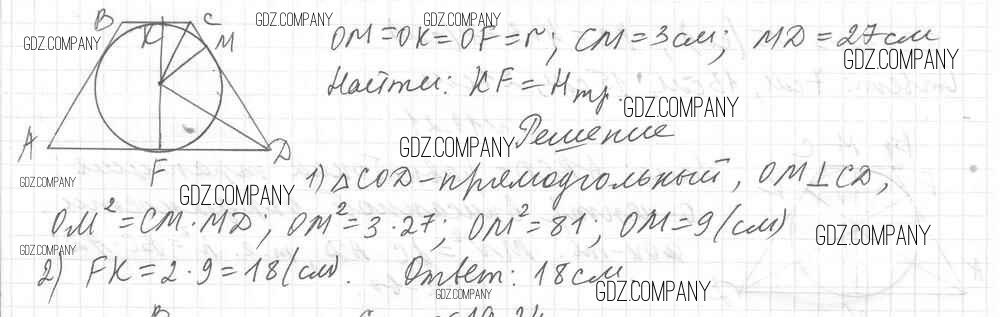 GDZ.COMPANY GDZ.COMPANY
B K C M
GDZ.COMPANY
OM=OK=OF=r; CM=3см; MD=27см
GDZ.COMPANY
Найти: KF=Hтр.
GDZ.COMPANY
Решение
GDZ.COMPANY
A F D
GDZ.COMPANY GDZ.COMPANY
1) △COD-прямоугольный, OM⊥CD,
OM²=CM·MD; OM²=3·27; OM²=81; OM=9(см)
GDZ.COMPANY
GDZ.COMPANY
2) FK=2·9=18(см). Ответ: 18см
GDZ.COMPANY GDZ.COMPANY